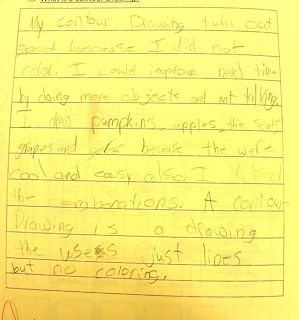 What is a contour drawing?
My contour Drawing turn out
because I did not
color. I could improve next time
by doing more objects and not talking.
I drew pumpkins, apples, the
grapes and because the were
cool and easy also I liked
the combonations. A contour
Drawing is a drawing
the uses just lines
but no coloring.